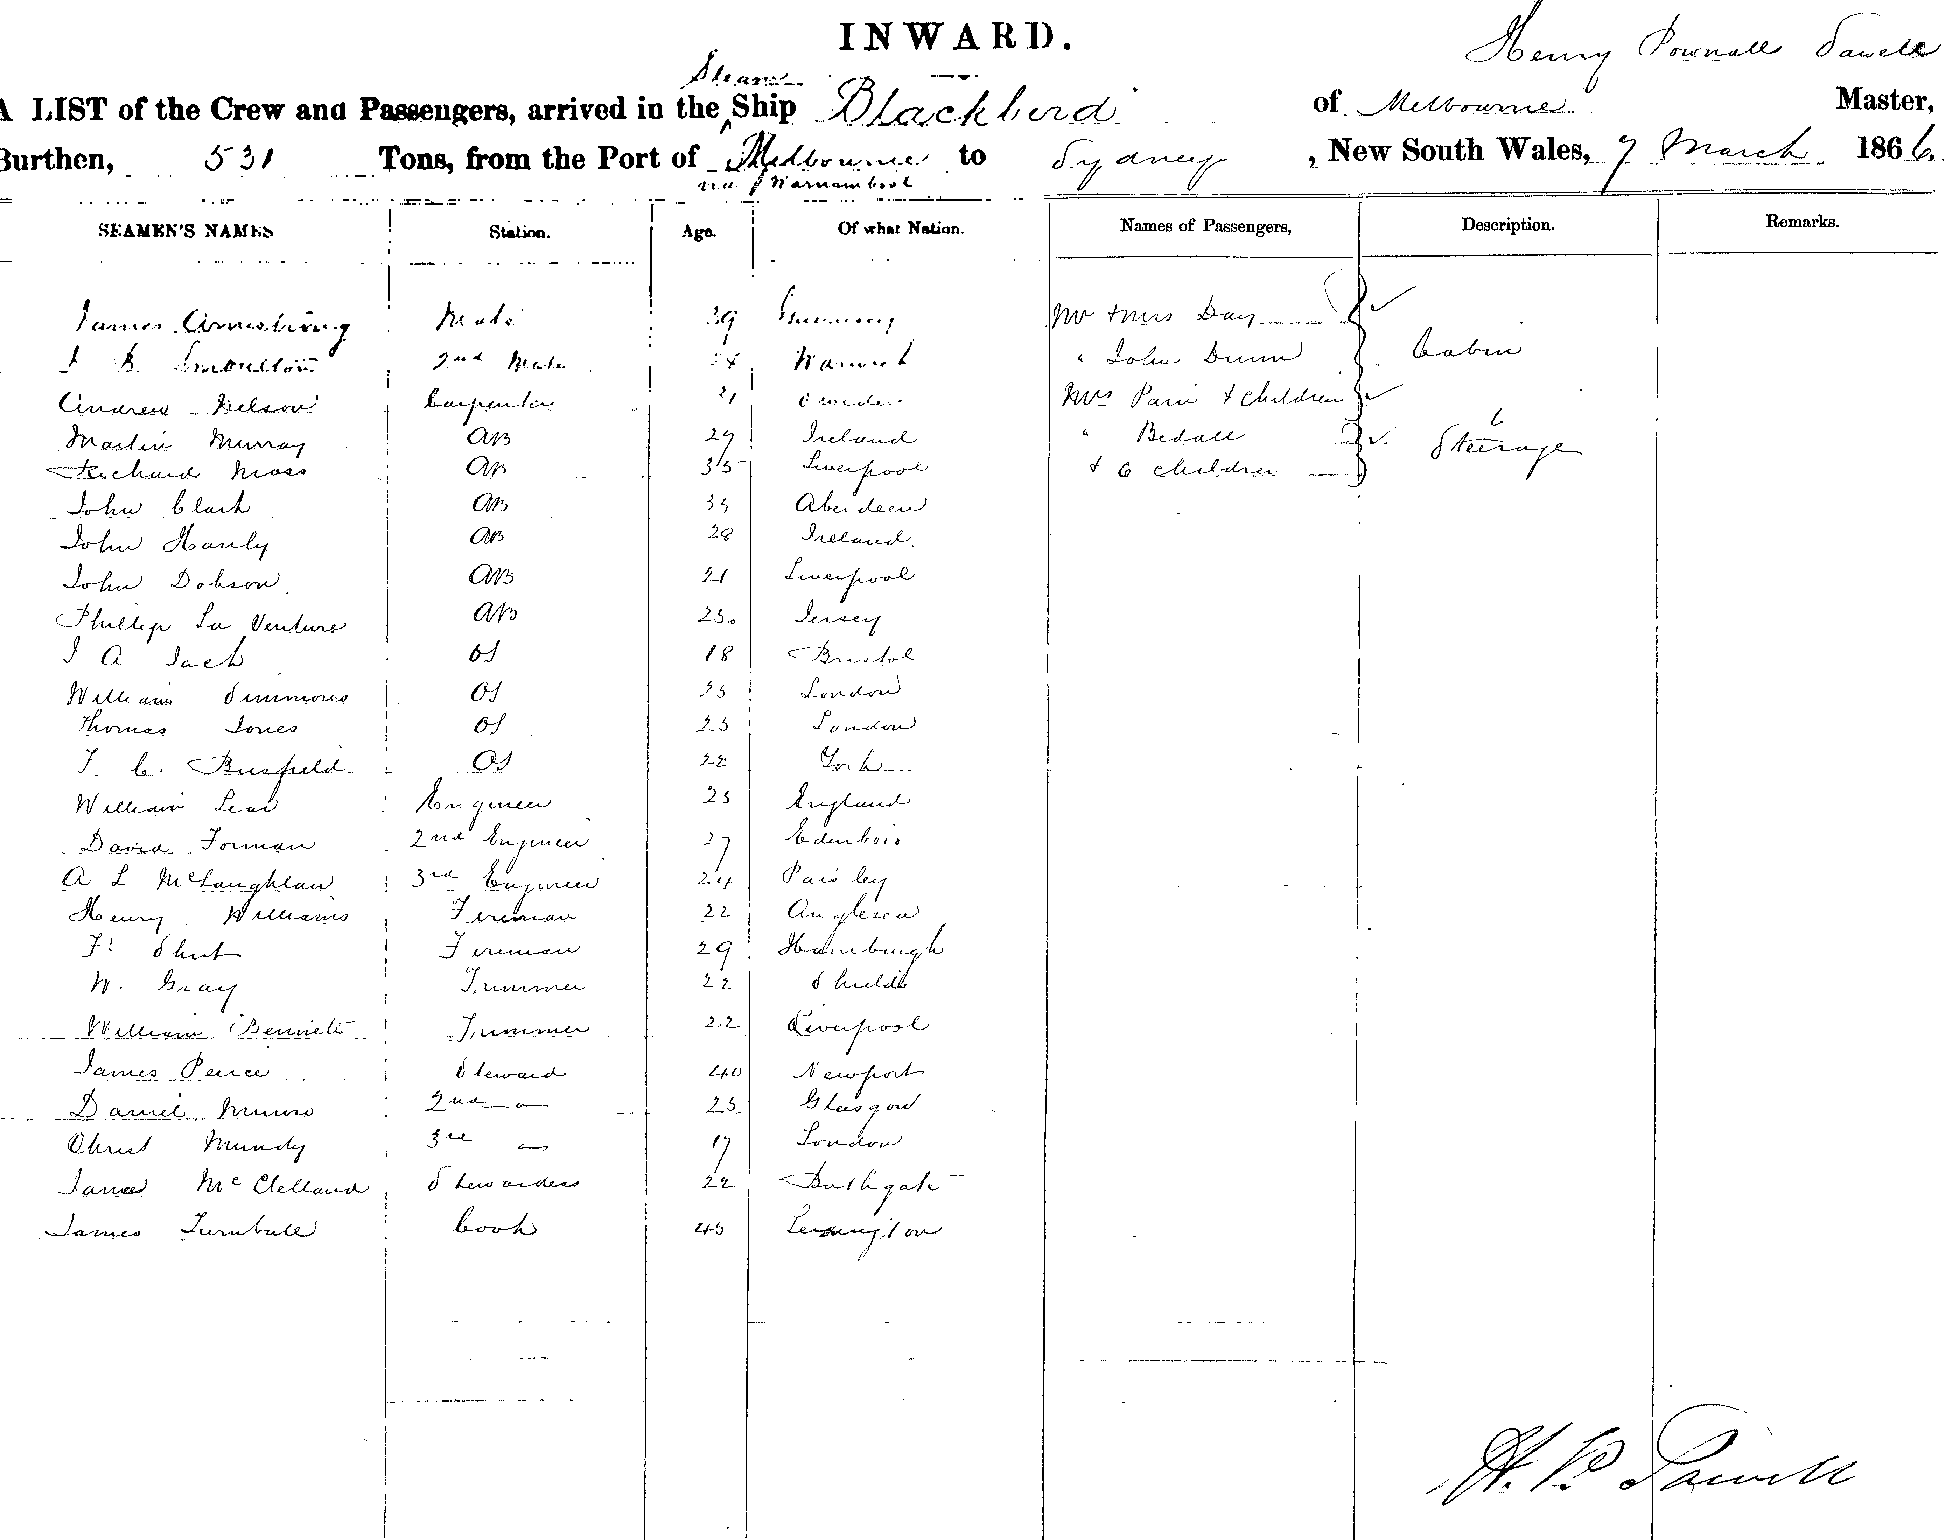 INWARD.
Henry Pownall Sawell
Steam
A LIST of the Crew and Passengers, arrived in the Ship Blackbird of Melbourne Master,
Burthen, 531 Tons, from the Port of Melbourne to Sydney, New South Wales, 7 March 1866.
via Warnambool
SEAMEN'S NAMES Station. Age. Of what Nation. Names of Passengers, Description. Remarks.
James Armstrong Mate 39 Mr & Mrs Day
J B 2nd Mate Warwick " John Dunn Cabin
Andrew Nelson Carpenter 21 Mrs & children
Martin Murray AB 29 Ireland " Bedall 6 Steerage
Richard Moss AB 35 Liverpool & 6 children
John Clark AB 34 Aberdeen
John Hanly AB 28 Ireland.
John Dobson AB 21 Liverpool
Phillip La Venture AB 25. Jersey
J A Jack OS 18 Bristol
William Simmons OS 25 London
Thomas Jones OS 23 London
T. C. Busfield OS 22 York
William Lear Engineer 25 England
David Forman 2nd Engineer 27 Edinboro
A L McLaughlan 3rd Engineer 24 Paisley
Henry Williams Fireman 22 Anglesea
F: Shut Fireman 29 Hamburgh
W. Gray Trimmer 22 Shields
William Bennett Trimmer 22 Liverpool
James Peirce Steward 40 Newport
Daniel Munro 2nd 25 Glasgow
Christ Mundy 3rd 17 London
Jane McClelland Stewardess 22 Bathgate
James Turnbull Cook 45
H. P. Sawell